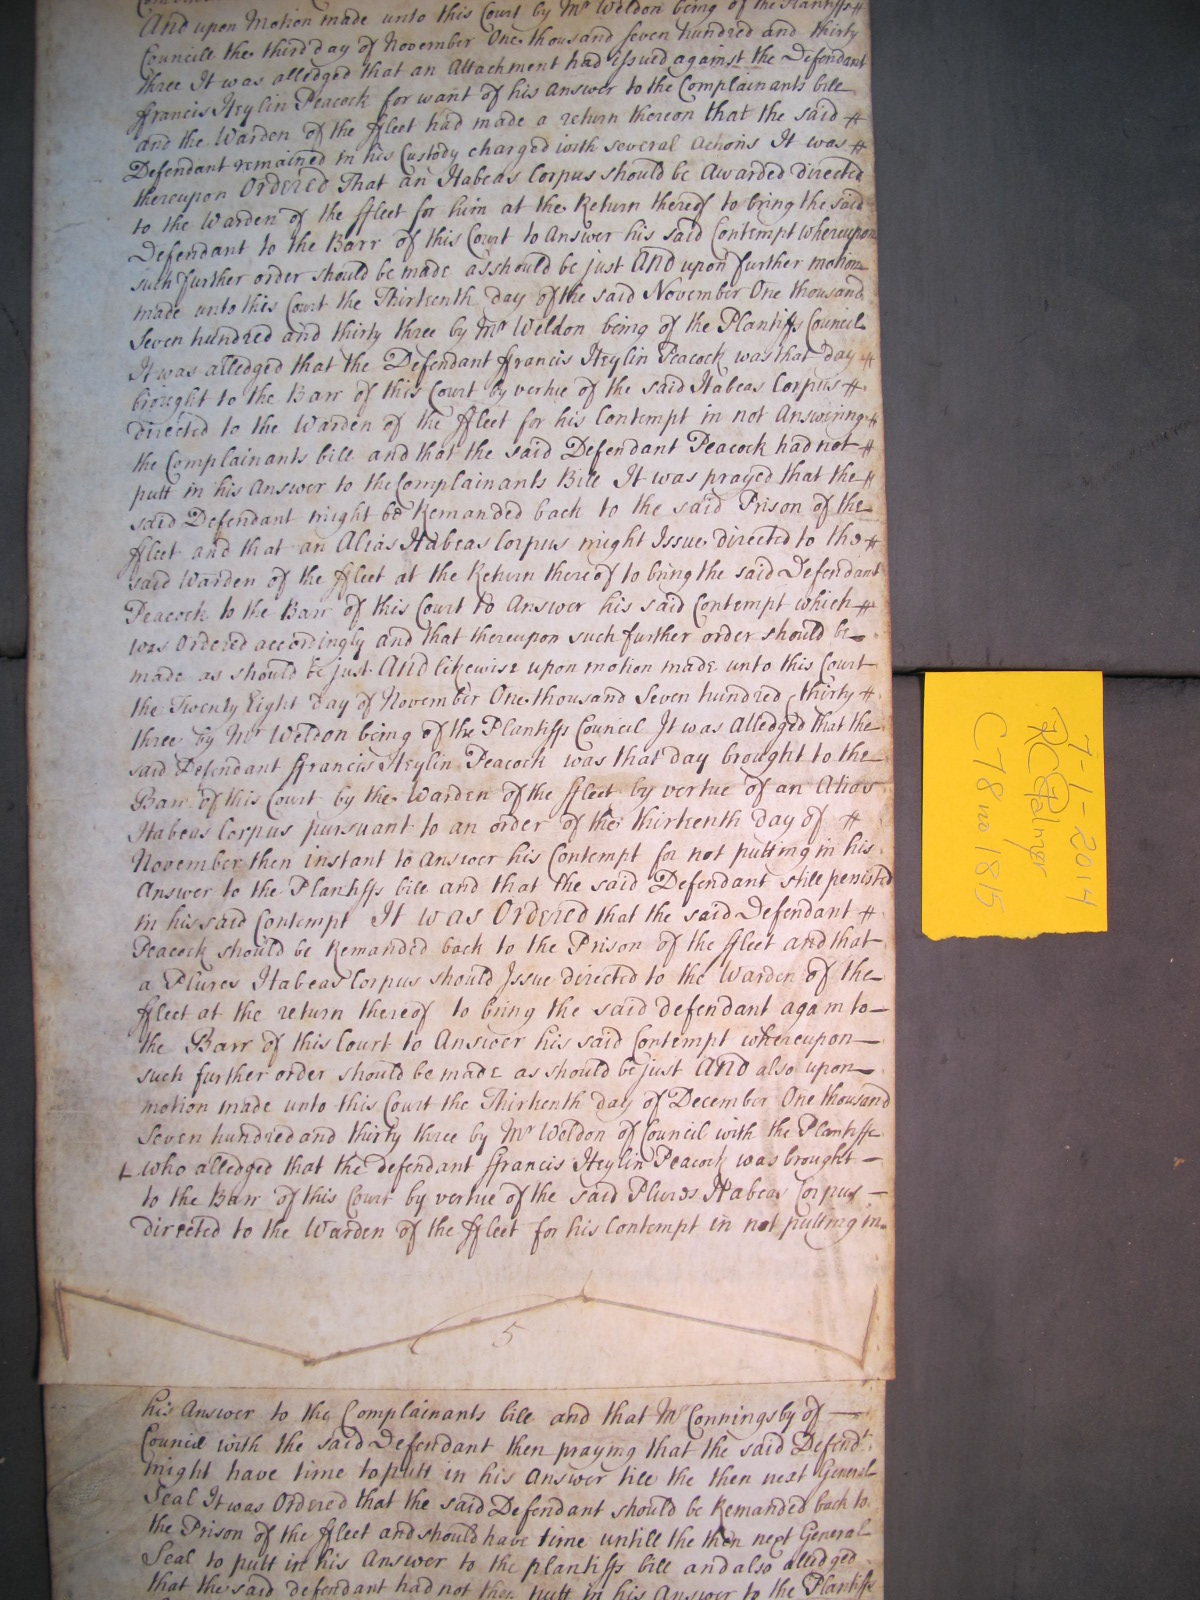 And upon Motion made unto this Court by Mr Weldon being of the Plantiffs
Councill the third day of November One thousand seven hundred and thirty
three It was alledged that an Attachment had issued against the Defendant
ffrancis Heylin Peacock for want of his Answer to the Complainants bill
and the Warden of the ffleet had made a return thereon that the said
Defendant remained in his Custody charged with several actions It was
thereupon Ordered That an Habeas Corpus should be Awarded directed
to the Warden of the ffleet for him at the Return thereof to bring the said
Defendant to the Barr of this Court to Answer his said Contempt whereupon
such further order should be made as should be just And upon further motion
made unto this Court the Thirteenth day of the said November One thousand
Seven hundred and thirty three by Mr Weldon being of the Plantiffs Councill
It was alledged that the Defendant ffrancis Heylin Peacock was that day
brought to the Barr of this Court by vertue of the said Habeas Corpus
directed to the Warden of the ffleet for his Contempt in not Answiring
the Complainants bill and that the said Defendant Peacock had not
putt in his Answer to the Complainants Bill It was prayed that the
said Defendant might be Remanded back to the said Prison of the
ffleet and that an Alias Habeas Corpus might Issue directed to the
said Warden of the ffleet at the Return thereof to bring the said Defendant
Peacock to the Barr of this Court to Answer his said Contempt which
was Ordered accordingly and that thereupon such further order should be
made as should be just And likewise upon motion made unto this Court
the Twenty Eight day of November One thousand Seven hundred thirty
three by Mr Weldon being of the Plantiffs Council It was Alledged that the
said Defendant ffrancis Heylin Peacock was that day brought to the
Barr of this Court by the Warden of the ffleet by vertue of an Alias
Habeas Corpus pursuant to an order of the thirteenth day of
November then instant to Answer his Contempt for not putting in his
Answer to the Plantiffs bill and that the said Defendant still persisted
in his said Contempt It was Ordered that the said Defendant
Peacock should be Remanded back to the Prison of the ffleet and that
a Plures Habeas Corpus should Issue directed to the Warden of the
ffleet at the return thereof to bring the said defendant again to
the Barr of this Court to Answer his said Contempt whereupon
such further order should be made as should be just And also upon
motion made unto this Court the Thirteenth day of December One thousand
Seven hundred and thirty three by Mr Weldon of Council with the Plantiffe
who alledged that the defendant ffrancis Heylin Peacock was brought
to the Barr of this Court by vertue of the said Plures Habeas Corpus
directed to the Warden of the ffleet for his Contempt in not putting in
5
his Answer to the Complainants bill and that Mr Conningsby of
Council with the said Defendant then praying that the said Defendt
might have time to putt in his Answer till the then next General
Seal It was Ordered that the said Defendant should be Remanded back to
the Prison of the ffleet and should have time untill the then next General
Seal to putt in his Answer to the plantiffs bill and also alledged
that the said defendant had not then putt in his Answer to the Plantiffs
7-1-2014
C78 no 1815